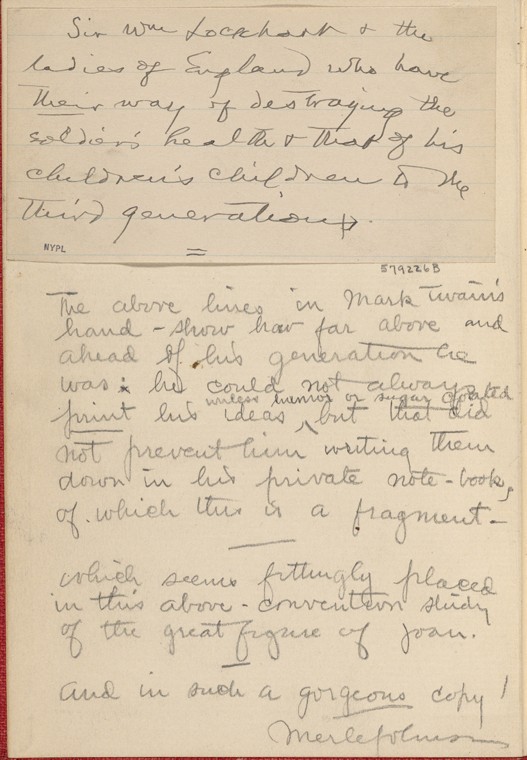 Sir Wm Lockhart & the
ladies of England who have
their way of destroying the
soldier's health & that of his
children's children to the
third generation.
NYPL
579226B
The above lines in Mark Twain's
hand - show how far above and
ahead of his generation he
was: he could not always
unless humor or sugar coated
print his ideas ‸ but that did
not prevent him writing them
down in his private note-book,
of which this is a fragment -
which seems fittingly placed
in this above-convention study
of the great figure of Joan.
And in such a gorgeous copy!
Merle Johnson